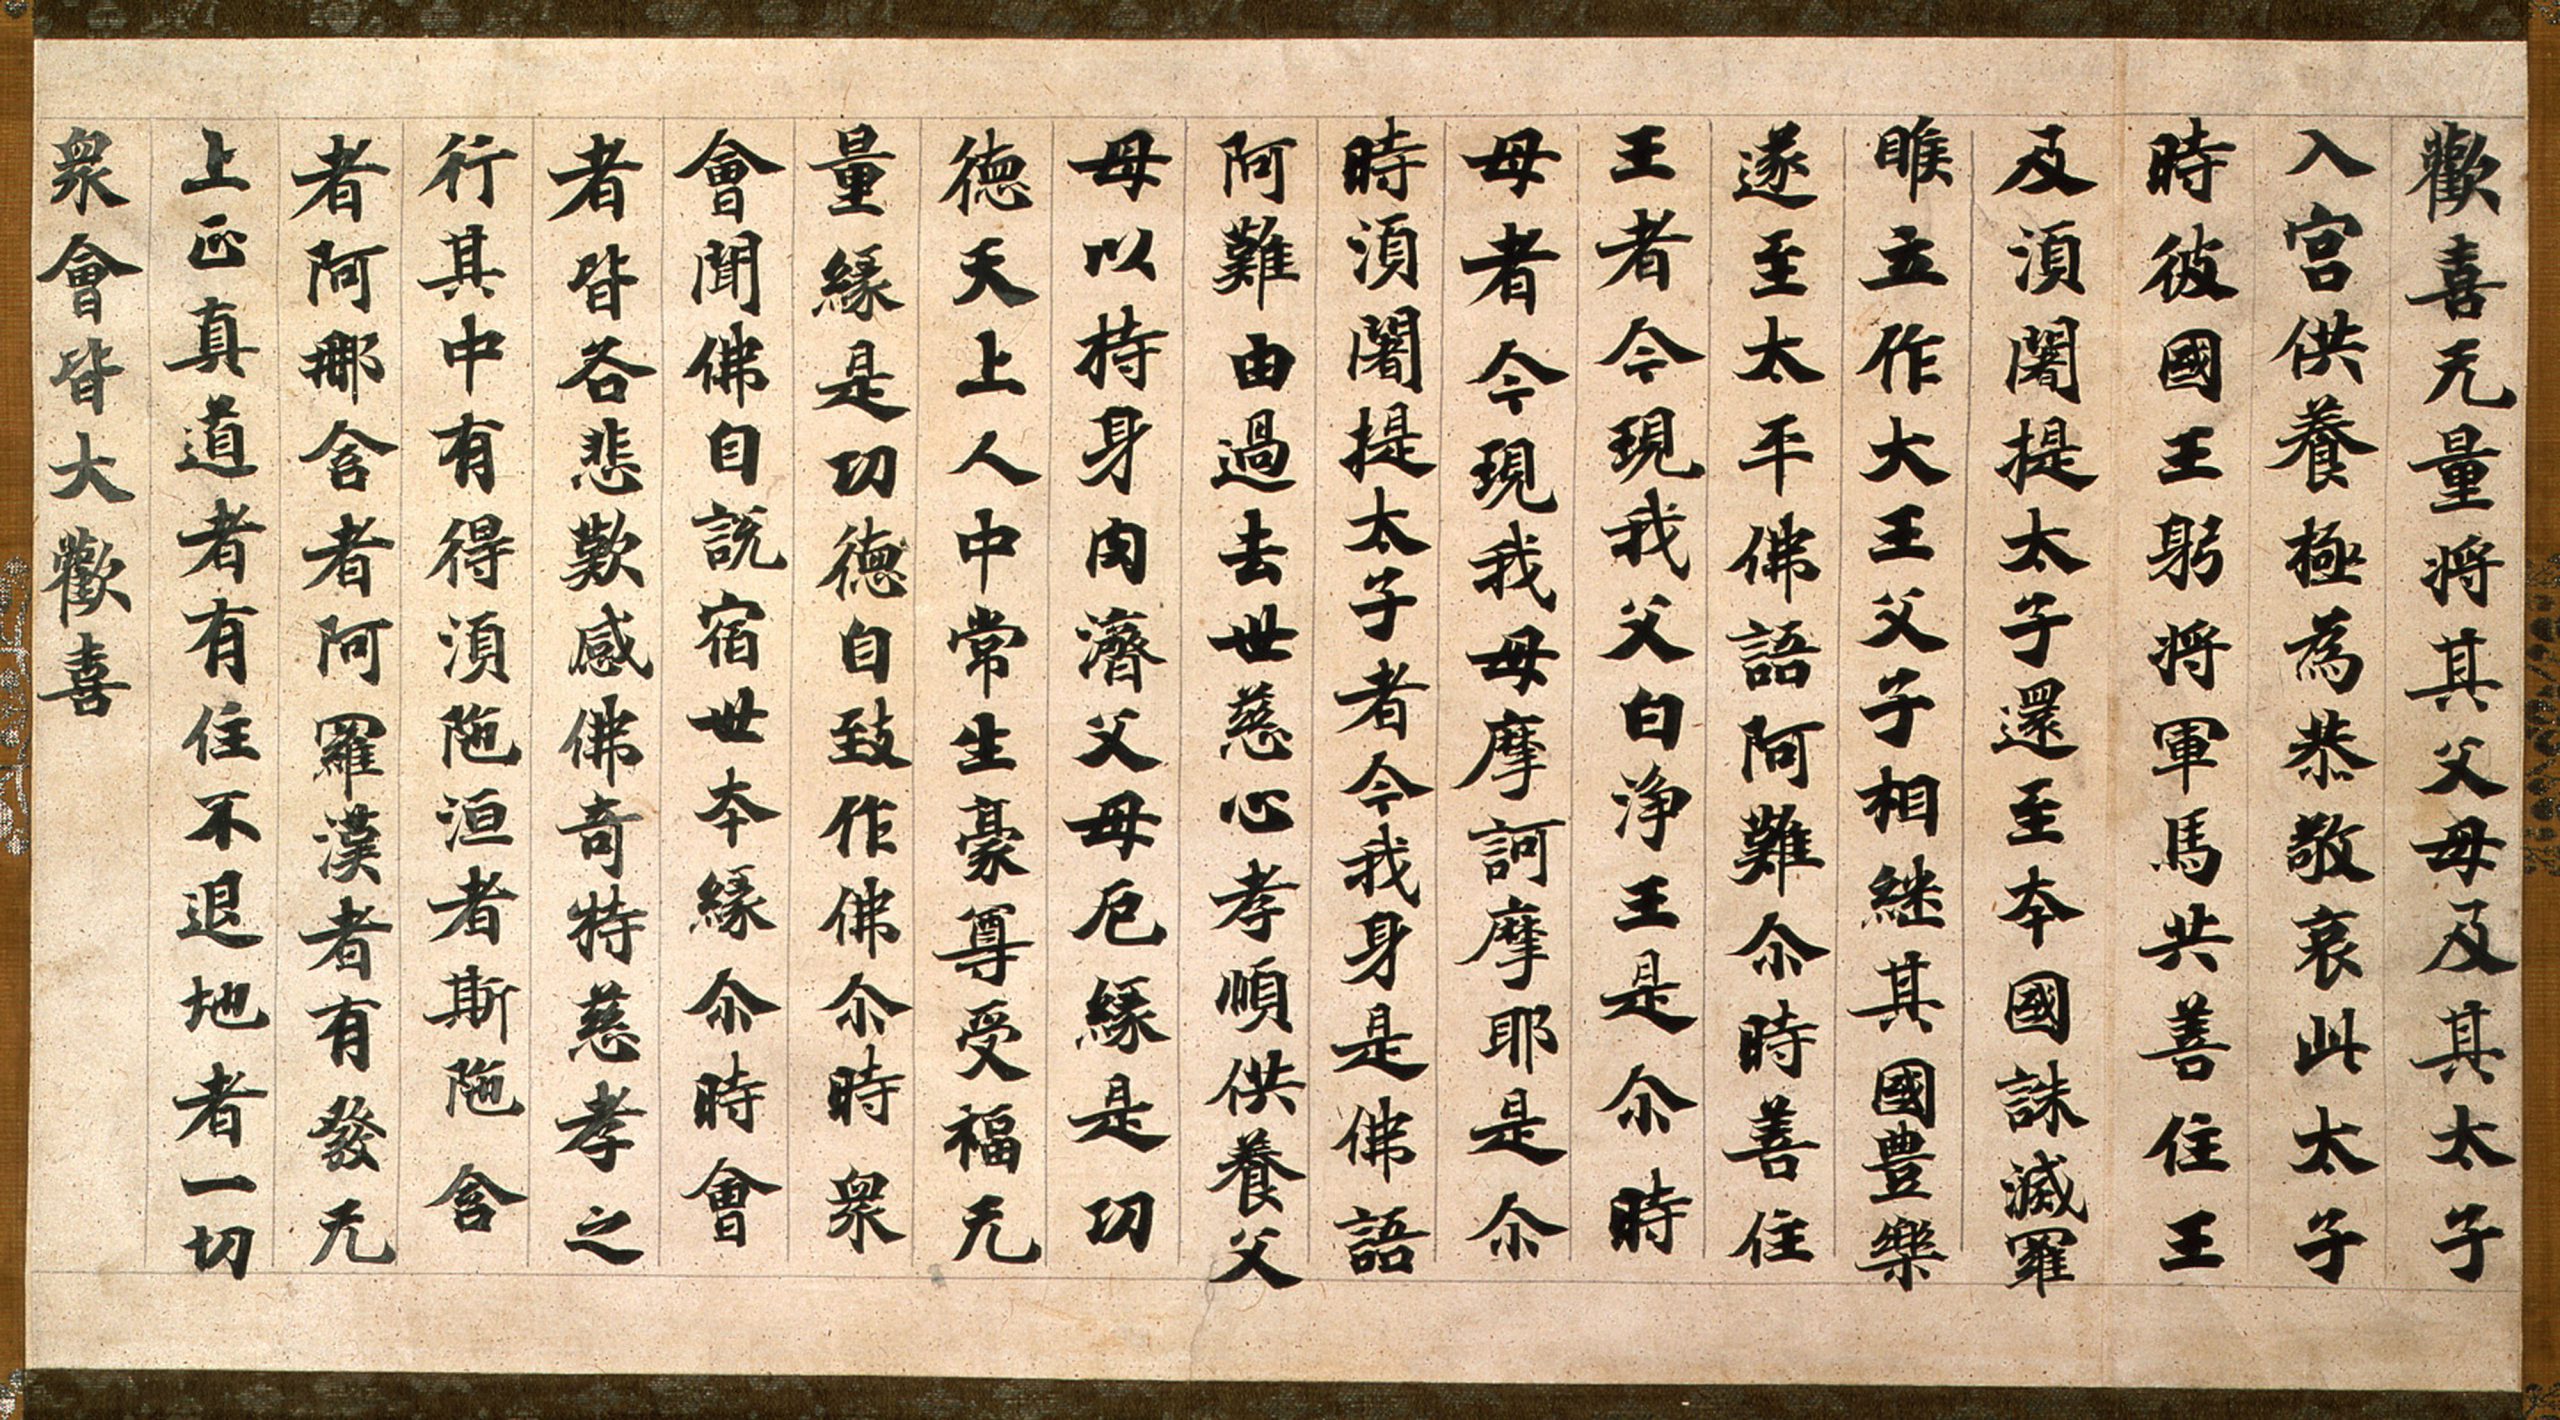 歡喜无量将其父母及其太子
入宫供養極為恭敬哀此太子
時彼國王躬将軍馬共善住王
及湏闍提太子還至本國誅滅羅
睺立作大王父子相継其國豊樂
遂至太平佛語阿難尒時善住
王者今現我父白浄王是尒時
母者今現我母摩訶摩耶是尒
時湏闍提太子者今我身是佛語
阿難由過去世慈心孝順供養父
母以持身肉濟父母厄緣是功
徳天上人中常生豪尊受福无
量緣是功徳自致作佛尒時衆
會聞佛自説宿世本緣尒時會
者皆各悲歎感佛奇特慈孝之
行其中有得湏陁洹者斯陁含
者阿那含者阿羅漢者有發无
上正真道者有住不退地者一切
衆會皆大歡喜